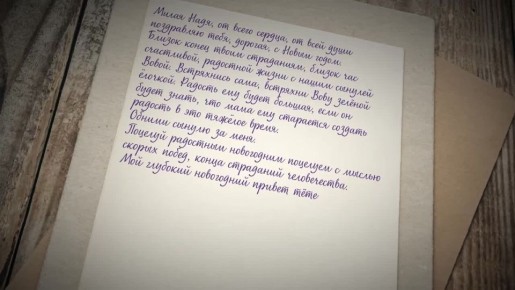 Милая Надя, от всего сердца, от всей души
поздравляю тебя, дорогая, с Новым годом.
Близок конец твоим страданиям, близок час
счастливой, радостной жизни с нашим сынулей
Вовой. Встряхнись сама, встряхни Вову зелёной
ёлочкой. Радость ему будет большая, если он
будет знать, что мама ему старается создать
радость в это тяжёлое время.
Обними сынулю за меня.
Поцелуй радостным новогодним поцелуем с мыслью
скорых побед, конца страданий человечества.
Мой глубокий новогодний привет тёте